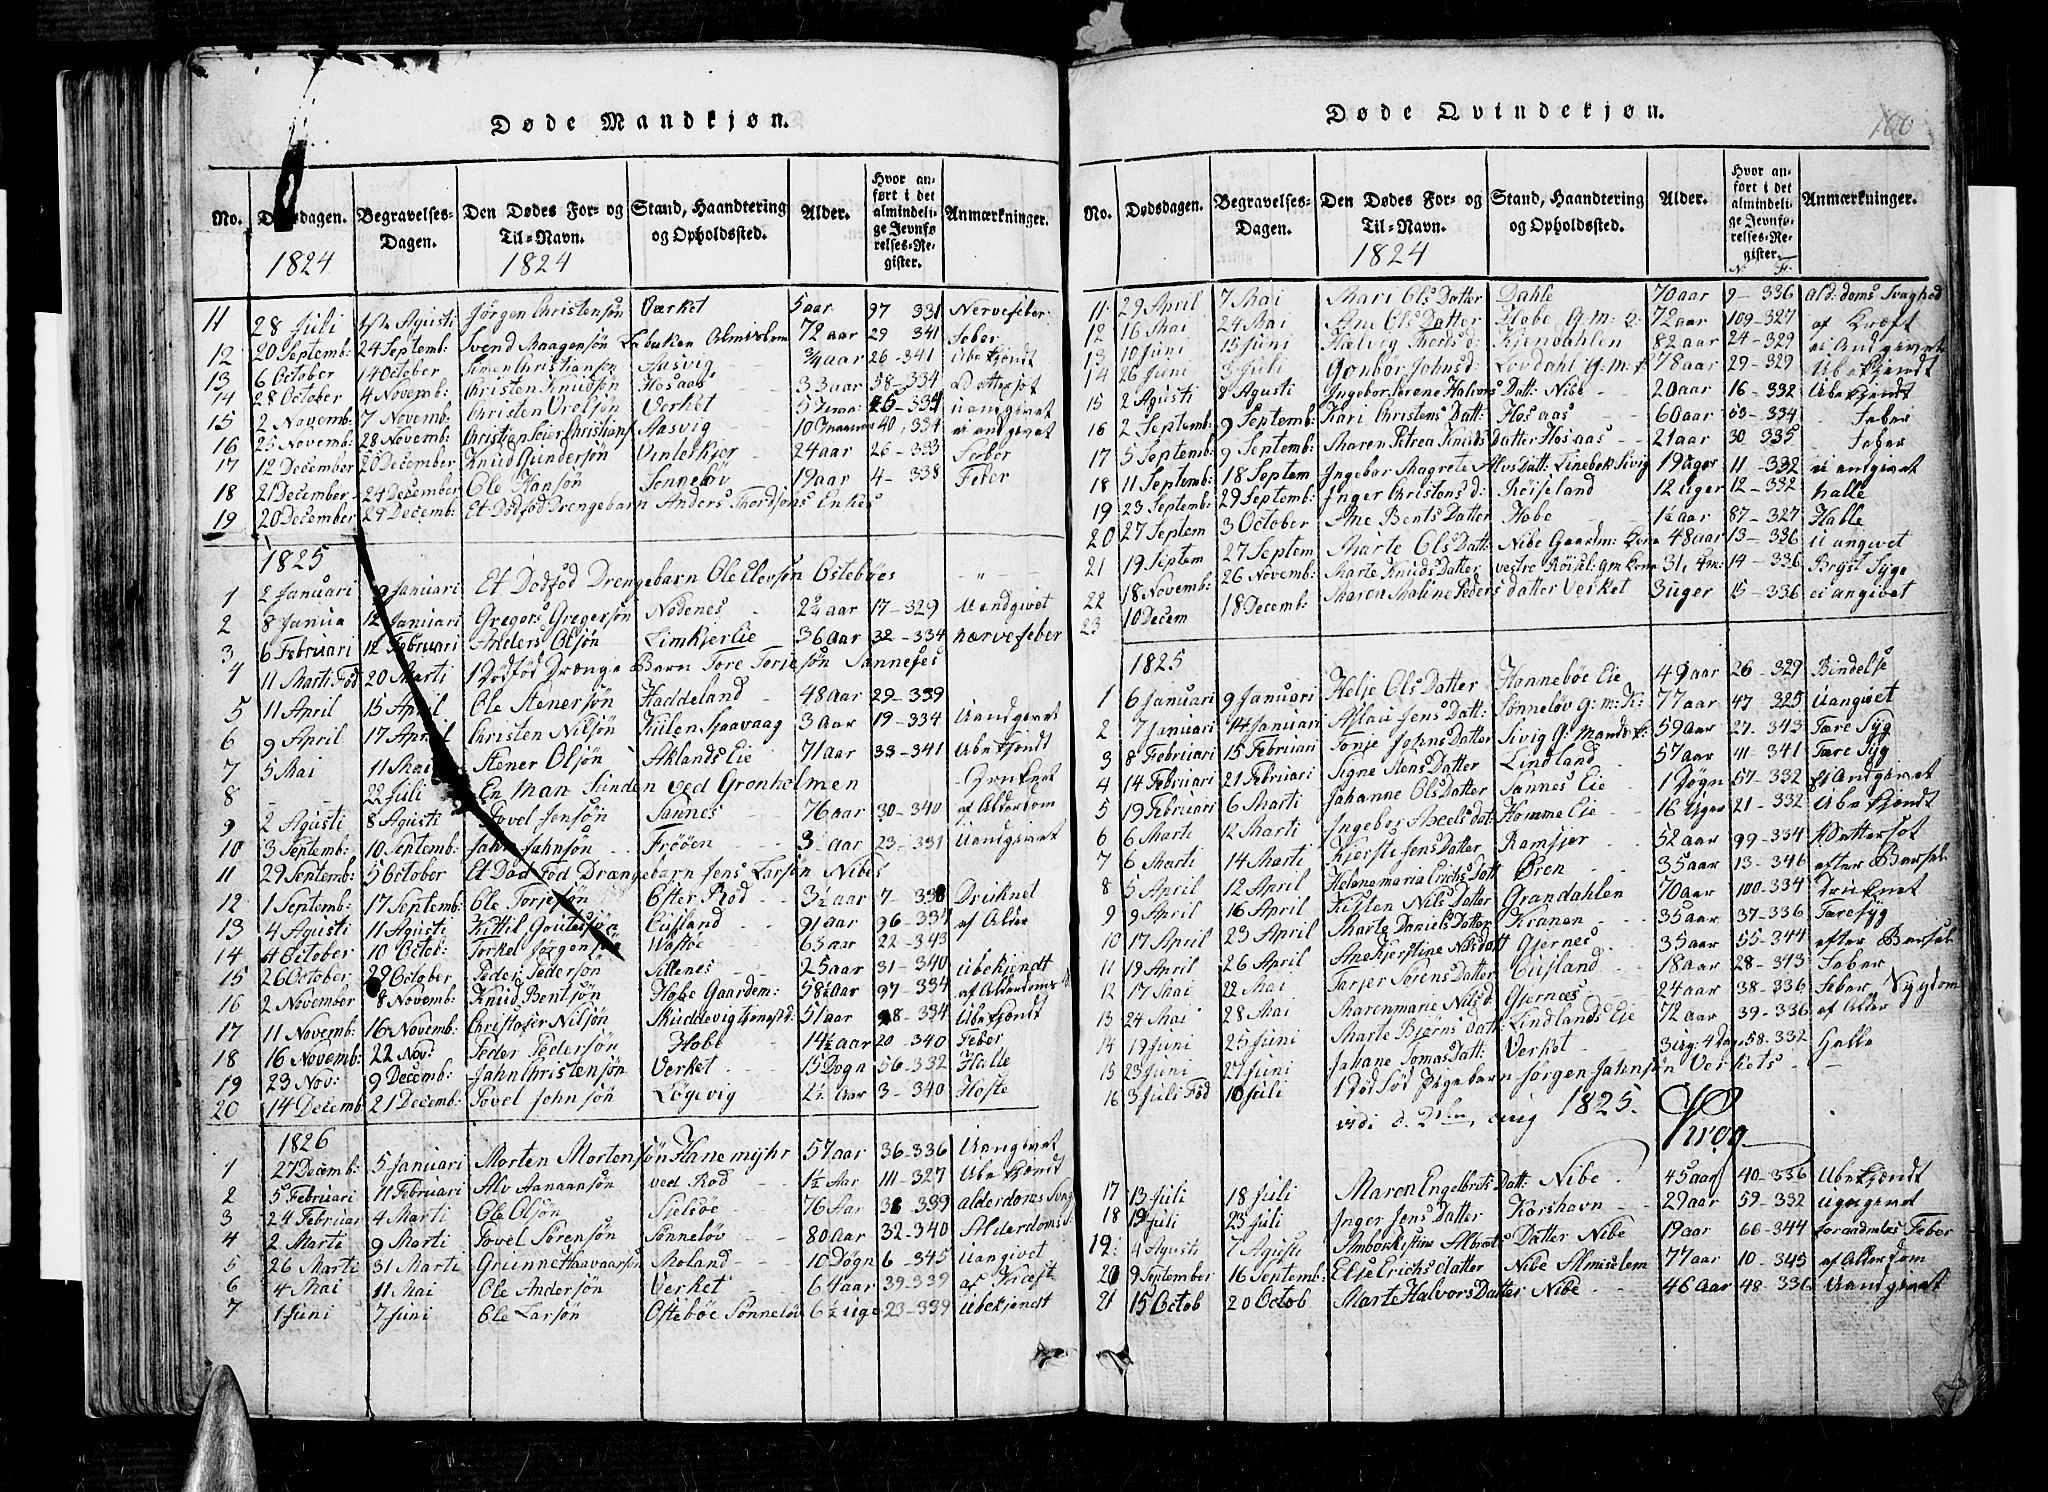 Døde Mandkjøn.
No. Dødsdagen. Begravelses-Dagen. Den Dødes For- og Til-Navn. Stand, Haandtering og Opholdssted. Alder. Hvor anført i det almindelige Jevnførelses-Register. Anmærkninger.
1824 1824
11 28 Juli Agusti Jörgen Christensön Værket 5 aar 97 331 Nervefeber
12 20 Septemb: 24 Septemb: Svend Aaagensön 72 aar 29 341 Feber
13 6 October 14 October Simen Christiansön Aasvig 3/4 aar 26-341 ubekjendt
14 28 October 4 Novemb: Christen Knudsön Hosaas 33 aar 58-334 Vattersot
15 2 Novemb: 7 Novemb: Christen Vrolsön Verket 26-334 uangivet
16 25 Novemb: 28 Novemb: Aasvig 40, 334 ei angivet
17 12 December 20 December Knud Gundersön Vinterkjer 24 aar 26-333 Feber
18 21 December 24 December Ole Hansön Sonneløv 19 aar 4-338 Feber
19 20 December 29 Decemb: Et Dödföd Drengebarn Anders Thordsöns Enkes
1825
1 2 Januari 9 Januari Et Dödföd Drengebarn Ole Elevsön Ostebøes
2 8 Janua 12 Januari Gregers Gregersön Nødenes 2 3/4 aar 17-329 Uandgivet
3 6 Februari 12 Februari Anders Olsön Limkjer Eie 36 Aar 32-334 nærvefeber
4 11 Marti Föd 20 Marti 1 Dödföd Drænge Barn Tore Torjesön Sannæses
5 11 April 15 April Ole Stenersön Haddeland 48 Aar 29-339
6 9 April 17 April Christen Nilsön Kiilen 3 Aar 19-334 Uandgivet
7 5 Mai 11 Mai Stener Olsön Aklands Eie 71 Aar 33-341 Ubekjendt
8 - - 22 Juli En Man funden ved Gronholmen Druknet
9 2 Agusti 8 Agusti Povel Jensön Sannes 76 aar 30-340 af Alderdom
10 3 Septemb: 10 Septemb: Jahn Jahnsön Frøöen 3 Aar 23-331 Uandgivet
11 29 Septemb: 5 October Et Död Föd Drængebarn Jens Larsön Nibes
12 1 Septemb: 17 Septemb: Ole Torjesön Efter Röd 3½ aar 7-338 Druknet
13 4 Agusti 11 Agusti Kittil Goutesön Eusland 91 aar 96-337 af Alder
14 4 October 10 Octob: Terkel Jörgensön Wastöe 63 aar 22-343
15 26 October 29 October Peder Pedersön Sillenes 25 aar 31-340 ubekjendt
16 2 November 8 Novemb: Knud Bentsön Hobe Gaardem: 58½ Aar 97-334 af Alderdoms
17 11 Novemb: 16 Novemb: Christofer Nilsön 51 aar 28-334 Ubekjendt
18 16 Novemb: 22 Nov: Peder Pedersön Hobe 14½ aar 20-340 Feber
19 23 Nov: 9 Decemb: Jahn Christensön Verket 15 Dogn 56-332 Halle
20 14 Decemb 21 Decemb: Povel Johnsön Lögevig 1½ Aar 3-340 Hoste
1826
1 27 Decemb: 5 Januari Morten Mortensön Hanemyhr 57 aar 36-336 Uangivet
2 5 Februari 11 Februari Alv Aanaansön ved Röd 1½ Aar 111-327 Ubekjendt
3 24 Februar 4 Marti Ole Olsön Sjelsöe 76 Aar 38-339 alderdoms Svag
4 2 Marti 9 Marti Povel Sörensön Sönneløv 80 Aar 32-340 Alderdoms
5 26 Marti 31 Marti Grunne Haavaarsön Moland 10 Døgn 6-345 Uangivet
6 4 Mai 11 Mai Ole Andersön Verket 64 aar 39-339 af Kræft
7 1 Juni 7 Juni Ole Larsön Ostebøe Sönneløv 6½ uge 23-339 ubekjendt
Døde Qvindekjøn.
100
No. Dødsdagen. Begravelses-Dagen. Den Dødes For- og Til-Navn. Stand, Haandtering og Opholdssted. Alder. Hvor anført i det almindelige Jevnførelses-Register. Anmærkninger.
1824 N. F.
11: 29 April 7 Mai Mari Ols Datter Dahle 70 aar 9-336 Alderdoms Svaghed
12 16 Mai 24 Mai Ane Ols Datter Hobe G: m: 72 aar 109-327 af Kræft
13 10 Juni 15 Juni Hælvig Thors d: Kjendahlen 82 aar 24-329 ei Andgivet
14 26 Juni 3 Juli Gonbör Johns d: Lovdahl G: m: 78 aar 29-329 Ubekjendt
15 2 Agusti 8 Agusti Ingebor Serene Halvors Datt: Nibe 20 aar 16-332 Ubekjendt
16 2 Septemb: 9 Septemb: Kari Christens Datt: Hosaas 60 aar 53-334 Feber
17 5 Septemb: 9 Septemb: Maren Petrea Knuds Datter Hosaas 21 aar 30 335 Feber
18 11 Septemb: 18 Septem Ingebor Magrete Alvs Datt: Linebek Sivig 19 uger 11-332 ei angivet
19 23 Septemb: 29 Septemb: Inger Christens d: Röiseland 12 uger 12-332 halle
20 27 Septem 3 October Ane Bents Datter Hobe 1½ aar 87-327 Halle
21 19 Septem 27 Septem Marte Ols Datt: Nibe Gaardm: Kone 48 aar 13-336 ei angivet
22 18 Novemb: 26 Novemb: Marte Knuds Datter vestre Röisel: gm Kone 31 14-336 Bryst Syge
23 10 Decem 18 Decemb: Maren Maline Peders datter Verket 3 uger 15-336 ei angivet
1825
1 6 Januari 9 Januari Helje Ols Datter Honnebøe Eie 49 aar 26-329 Bindelse
2 7 Januari 14 Januari Aslau Jens Datt: Sønneløv G: m: K: 77 aar 47-325 Uangivet
3 8 Februari 15 Februari Tonje Johns Datter Sivig G: Mands K: 59 aar 27-343 Tære Syg
4 14 Februari 21 Februari Signe Stens Datter Lindland 57 aar 41-341 Tære Syg
5 19 Februari 6 Marti Johanne Ols Datter Sannes Eie 1 Døgn 57-332 Ei Andgivet
6 6 Marti 12 Marti Ingebor Axels dat: Homme Eie 16 Uger 21-332 Ubekjendt
7 6 Marti 14 Marti Kjersti Jens Datter Ramsjer 52 aar 99-334 Vattersot
8 5 April 12 April Helene maria Erichs Datt Øren 35 aar 13-346 efter Barsel
9 9 April 16 April Kisten Nils Datter Grandahlen 70 aar 100-334 Druknet
10 17 April 23 April Marte Daniels Datter Kranen 35 aar 37-336 Tæresyg
11 19 April 26 April Ane Kjerstine Nils Datt Gjernes 35 aar 55-344 efter Barsel
12 17 Mai 22 Mai Tarjer Sörens Datter Eusland 18 aar 28-343 Feber
13 24 Mai 28 Mai Maren marie Nils d: Gjernæs 24 aar 38-336 Feber Sygdom
14 19 Juni 25 Juni Marte Bjørns Datt Lindlands Eie 72 aar 39-336 af Alder
15 23 Juni 27 Juni Johane Tomas Datt: Verket 3 58-332 Halle
16 3 Juli Föd 10 Juli 1 Död Föd Pige barn Jørgen Jahnsön Verkets
vidi d. 1825. Krog
17 13 Juli 18 Juli Maren Engelbrits Datt: Nibe 45 aar 40-336 Ubekjendt
18 19 Juli 23 Juli Inger Jens Datter Korshavn 29 aar 59-332 ugngivet
19: 4 Agusti 7 Agusti Ambor Kistine Albrets Datter Nibe 19 aar 60-344 foraadnelses Feber
20 9 September 16 Septemb: Elje Erichs datter Nibe Almislem 77 aar 10-345 af Alderdom
21 15 Octob 20 Octob Marte Halvors Datter Nibe 46 aar 48-336 Uandgivet